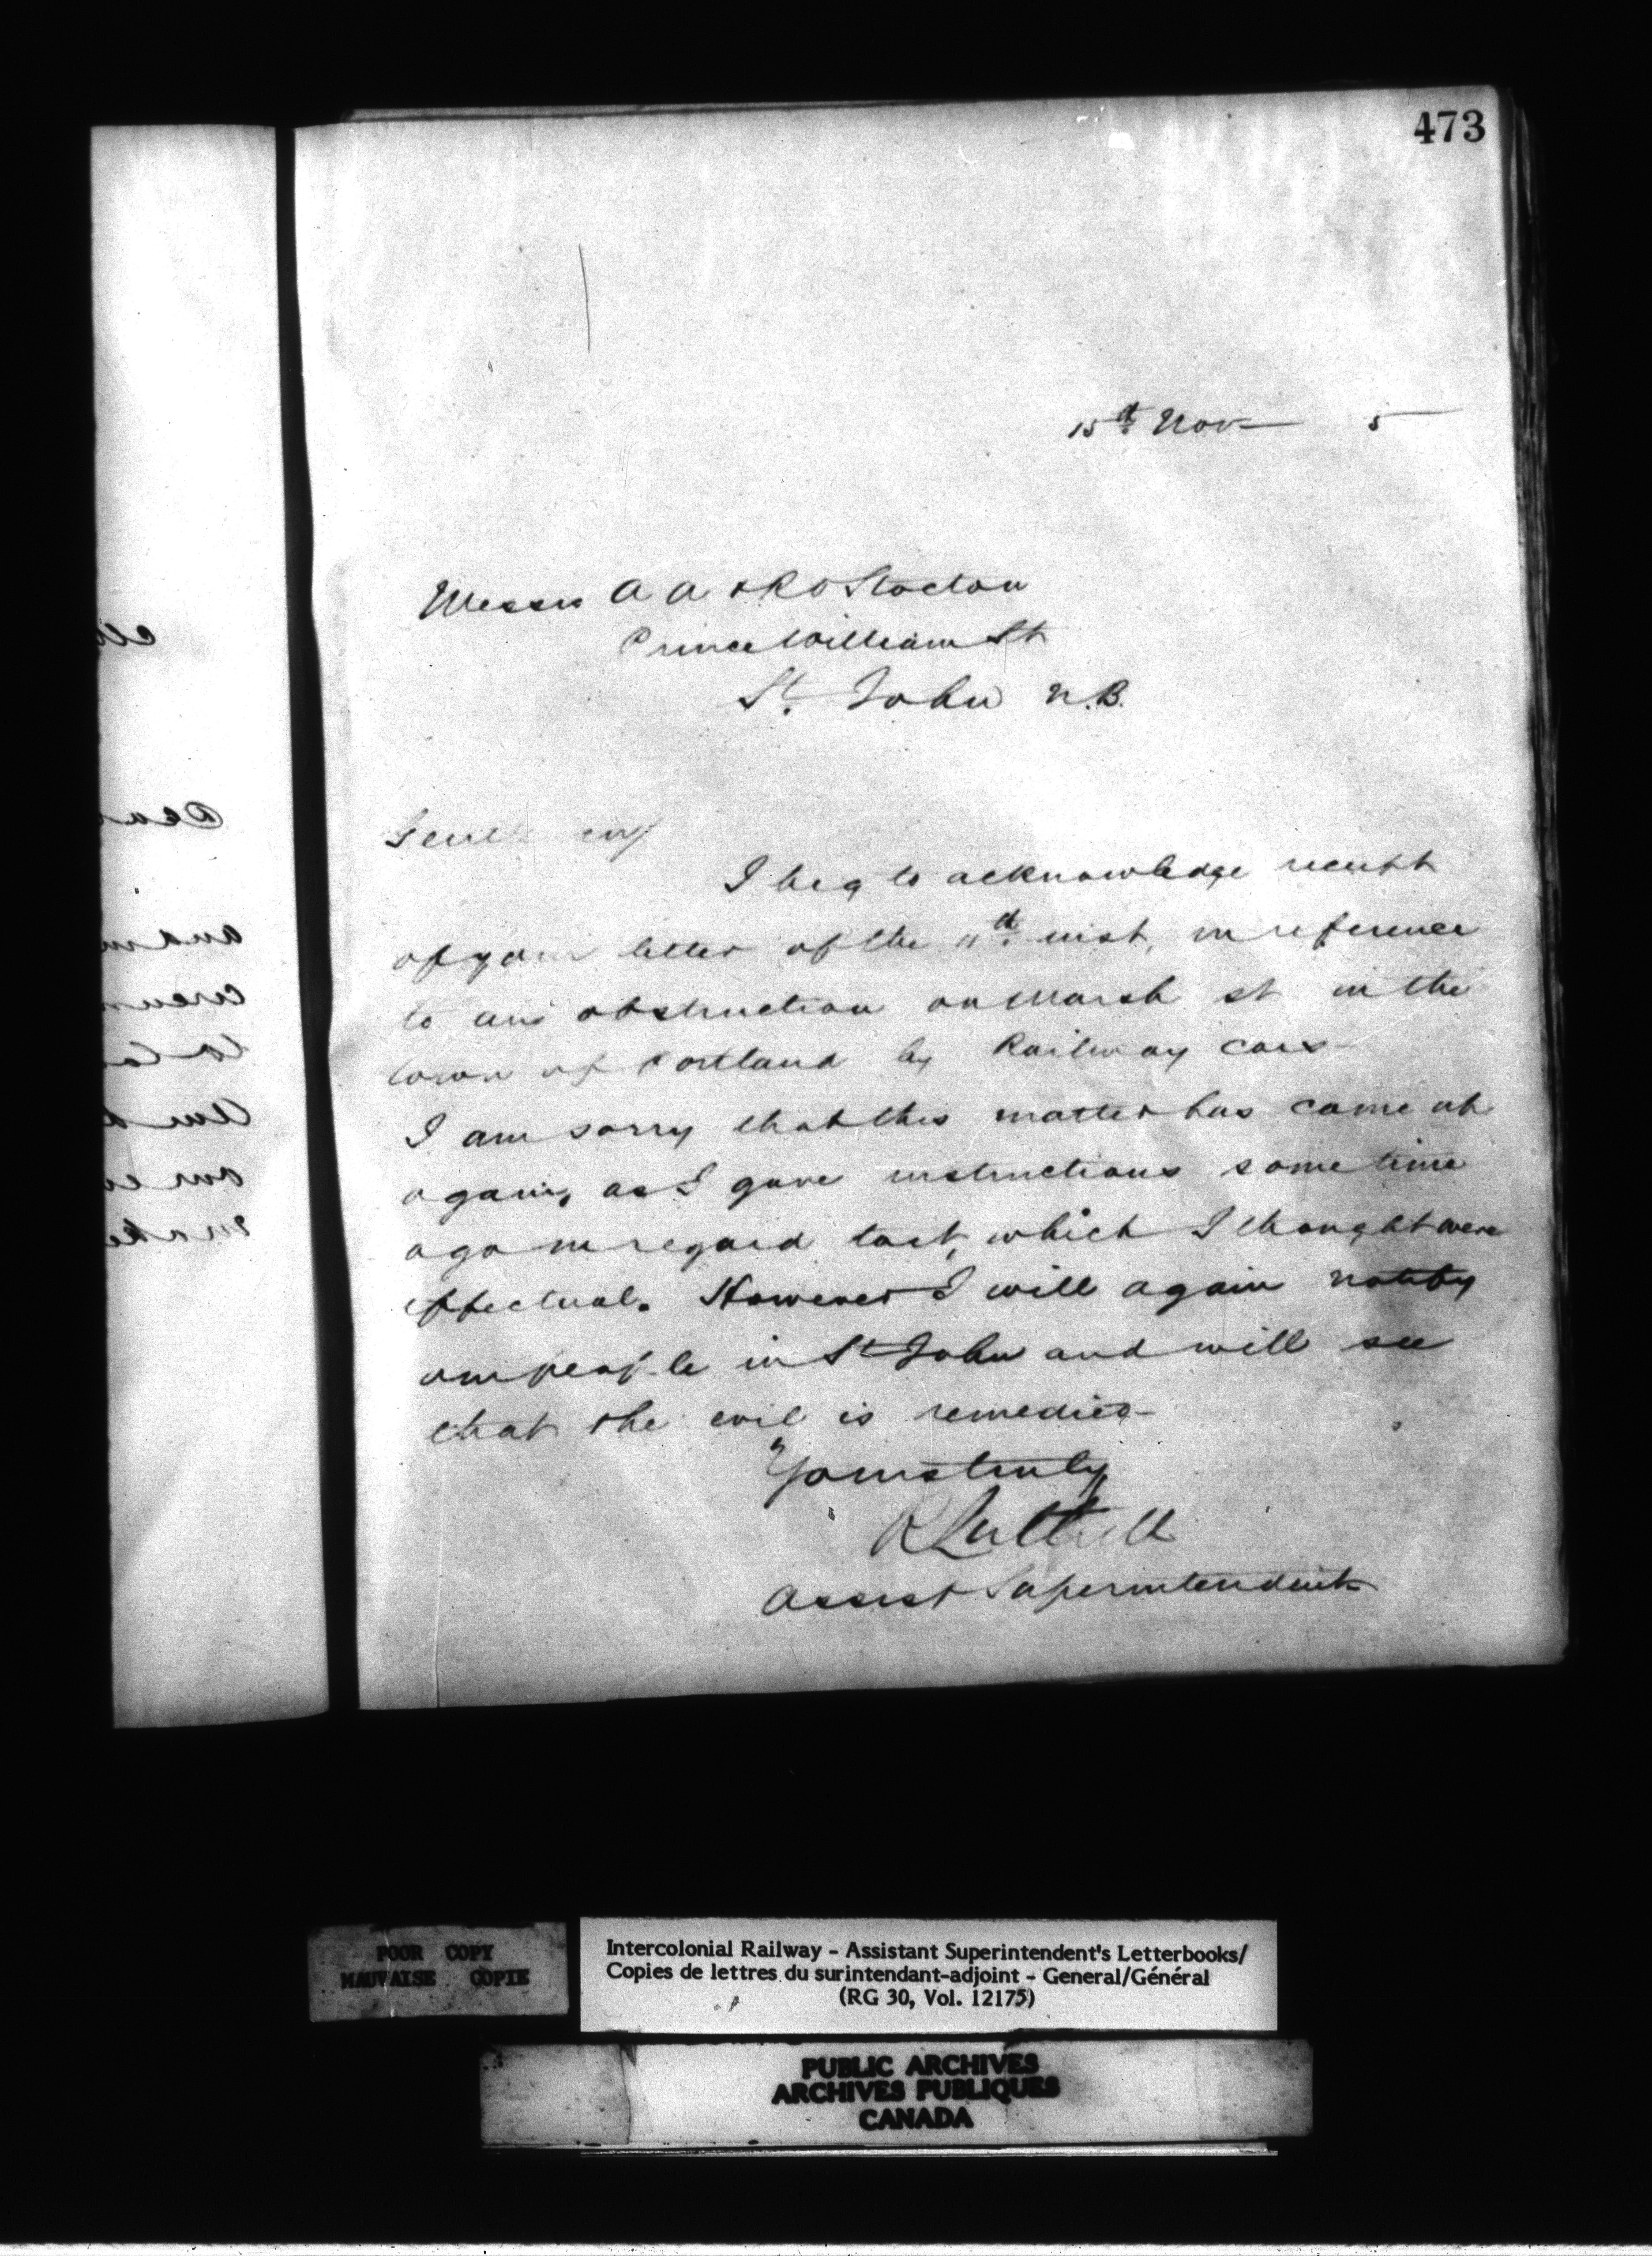 473
15th Nov 5
Messrs A A & R O Stockton
Prince William St
St. John N.B.
Gentlemen
I beg to acknowledge receipt
of your letter of the 11th inst, in reference
to an obstruction on Marsh st in the
town of Portland by Railway cars
I am sorry that this matter has come up
again, as I gave instructions some time
ago in regard to it, which I thought were
effectual. However I will again notify
our people in St John and will see
that the evil is remedied
Yours truly
R Luttrell
Assist Superintendent
POOR COPY
MAUVAISE COPIE
Intercolonial Railway - Assistant Superintendent's Letterbooks/
Copies de lettres du surintendant-adjoint - General/Général
(RG 30, Vol. 12175)
PUBLIC ARCHIVES
ARCHIVES PUBLIQUES
CANADA